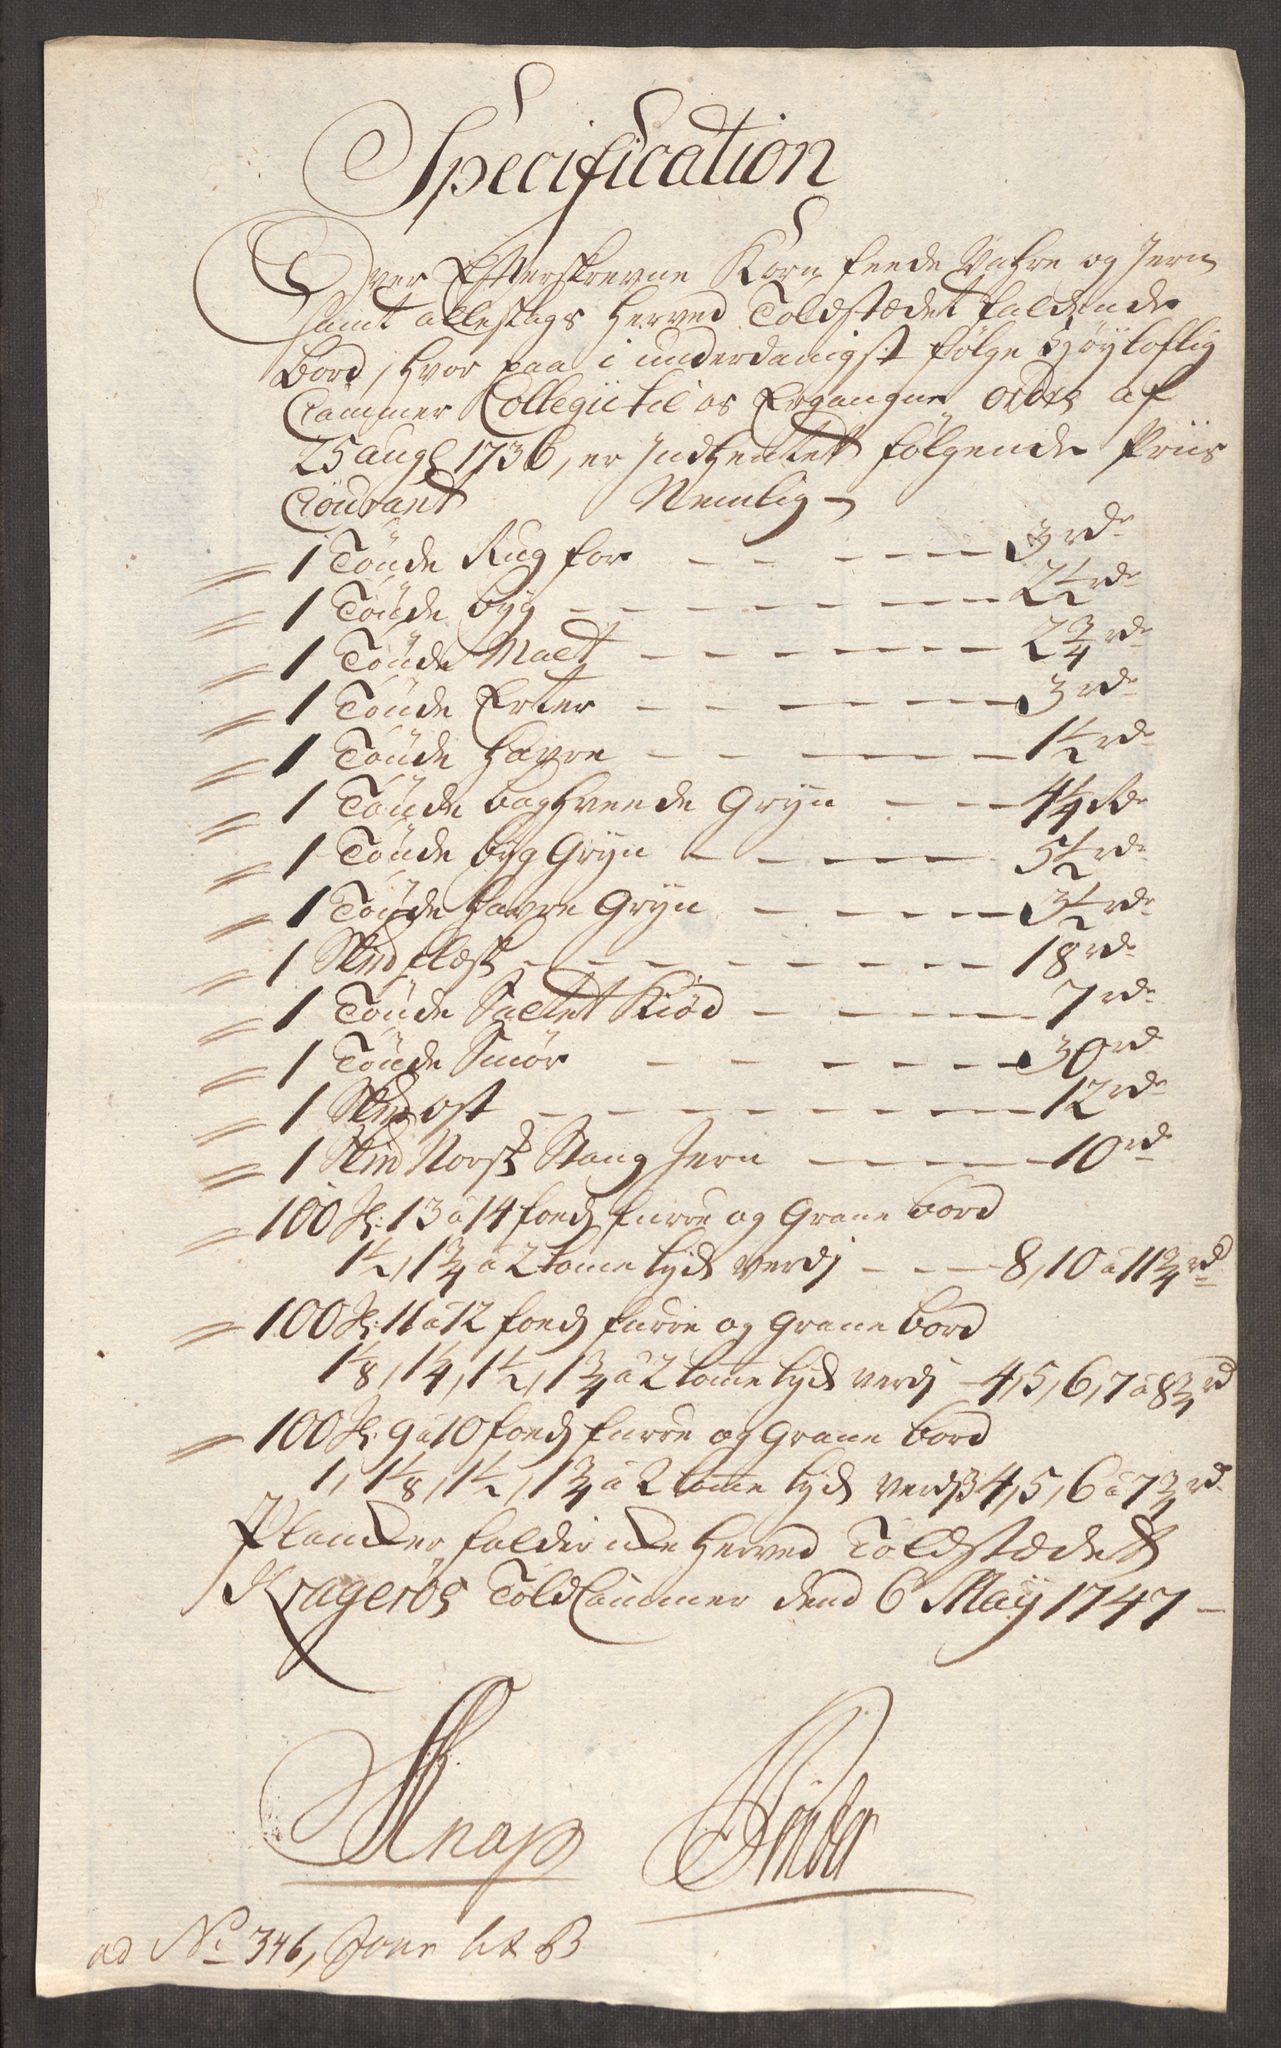 Specification
Over Efterskrevne Korn feede Vahre og Jern
samt alleslags herved Toldstædet faldende
Bord, hvor paa i underdanigst følge Høyloflig
Cammer Collegii til os Ergangne ordre af
25 augl 1736, er Indhentet følgende Priis
Couvant Nemlig
1 Tønde Rug for 3 rd
1 Tønde byg 2 1/2 rd
1 Tønde Malt 2 3/4 rd
1 Tønde Erter 3 rd
1 Tønde Havre 1 1/2 rd
1 Tønde boghveede Gryn 4 1/4 rd
1 Tønde byg Gryn 5 1/2 rd
1 Tønde Havre Gryn 3 1/2 rd
1 Skpd flesk 18 rd
1 Tønde Saltet Kiød 7 rd
1 Tønde Smør 30 rd
1 Skpd ost 12 rd
1 Skpd Norsk Stang Jern 10 rd
100 st: 13 a 14 foeds furre og Grane bord
1 1/2, 1 3/4 a 2 tome tyk verdj 8, 10 a 11 3/4 rd
100 st: 11 a 12 foeds furre og Grane bord
1 1/8, 1 1/4, 1 1/2, 1 3/4 a 2 tome tyk verdj 4, 5, 6, 7 a 8 3/4 rd
100 st: 9 a 10 foeds furre og Grane bord
1, 1 1/8, 1 1/2, 1 3/4 a 2 tome tyk verdj 3, 4, 5, 6 a 7 3/4 rd
Plancker falder icke herved Toldstædet
Kragerøes Told Cammer dend 6 May 1747
Knap
ad No 346, Litr B